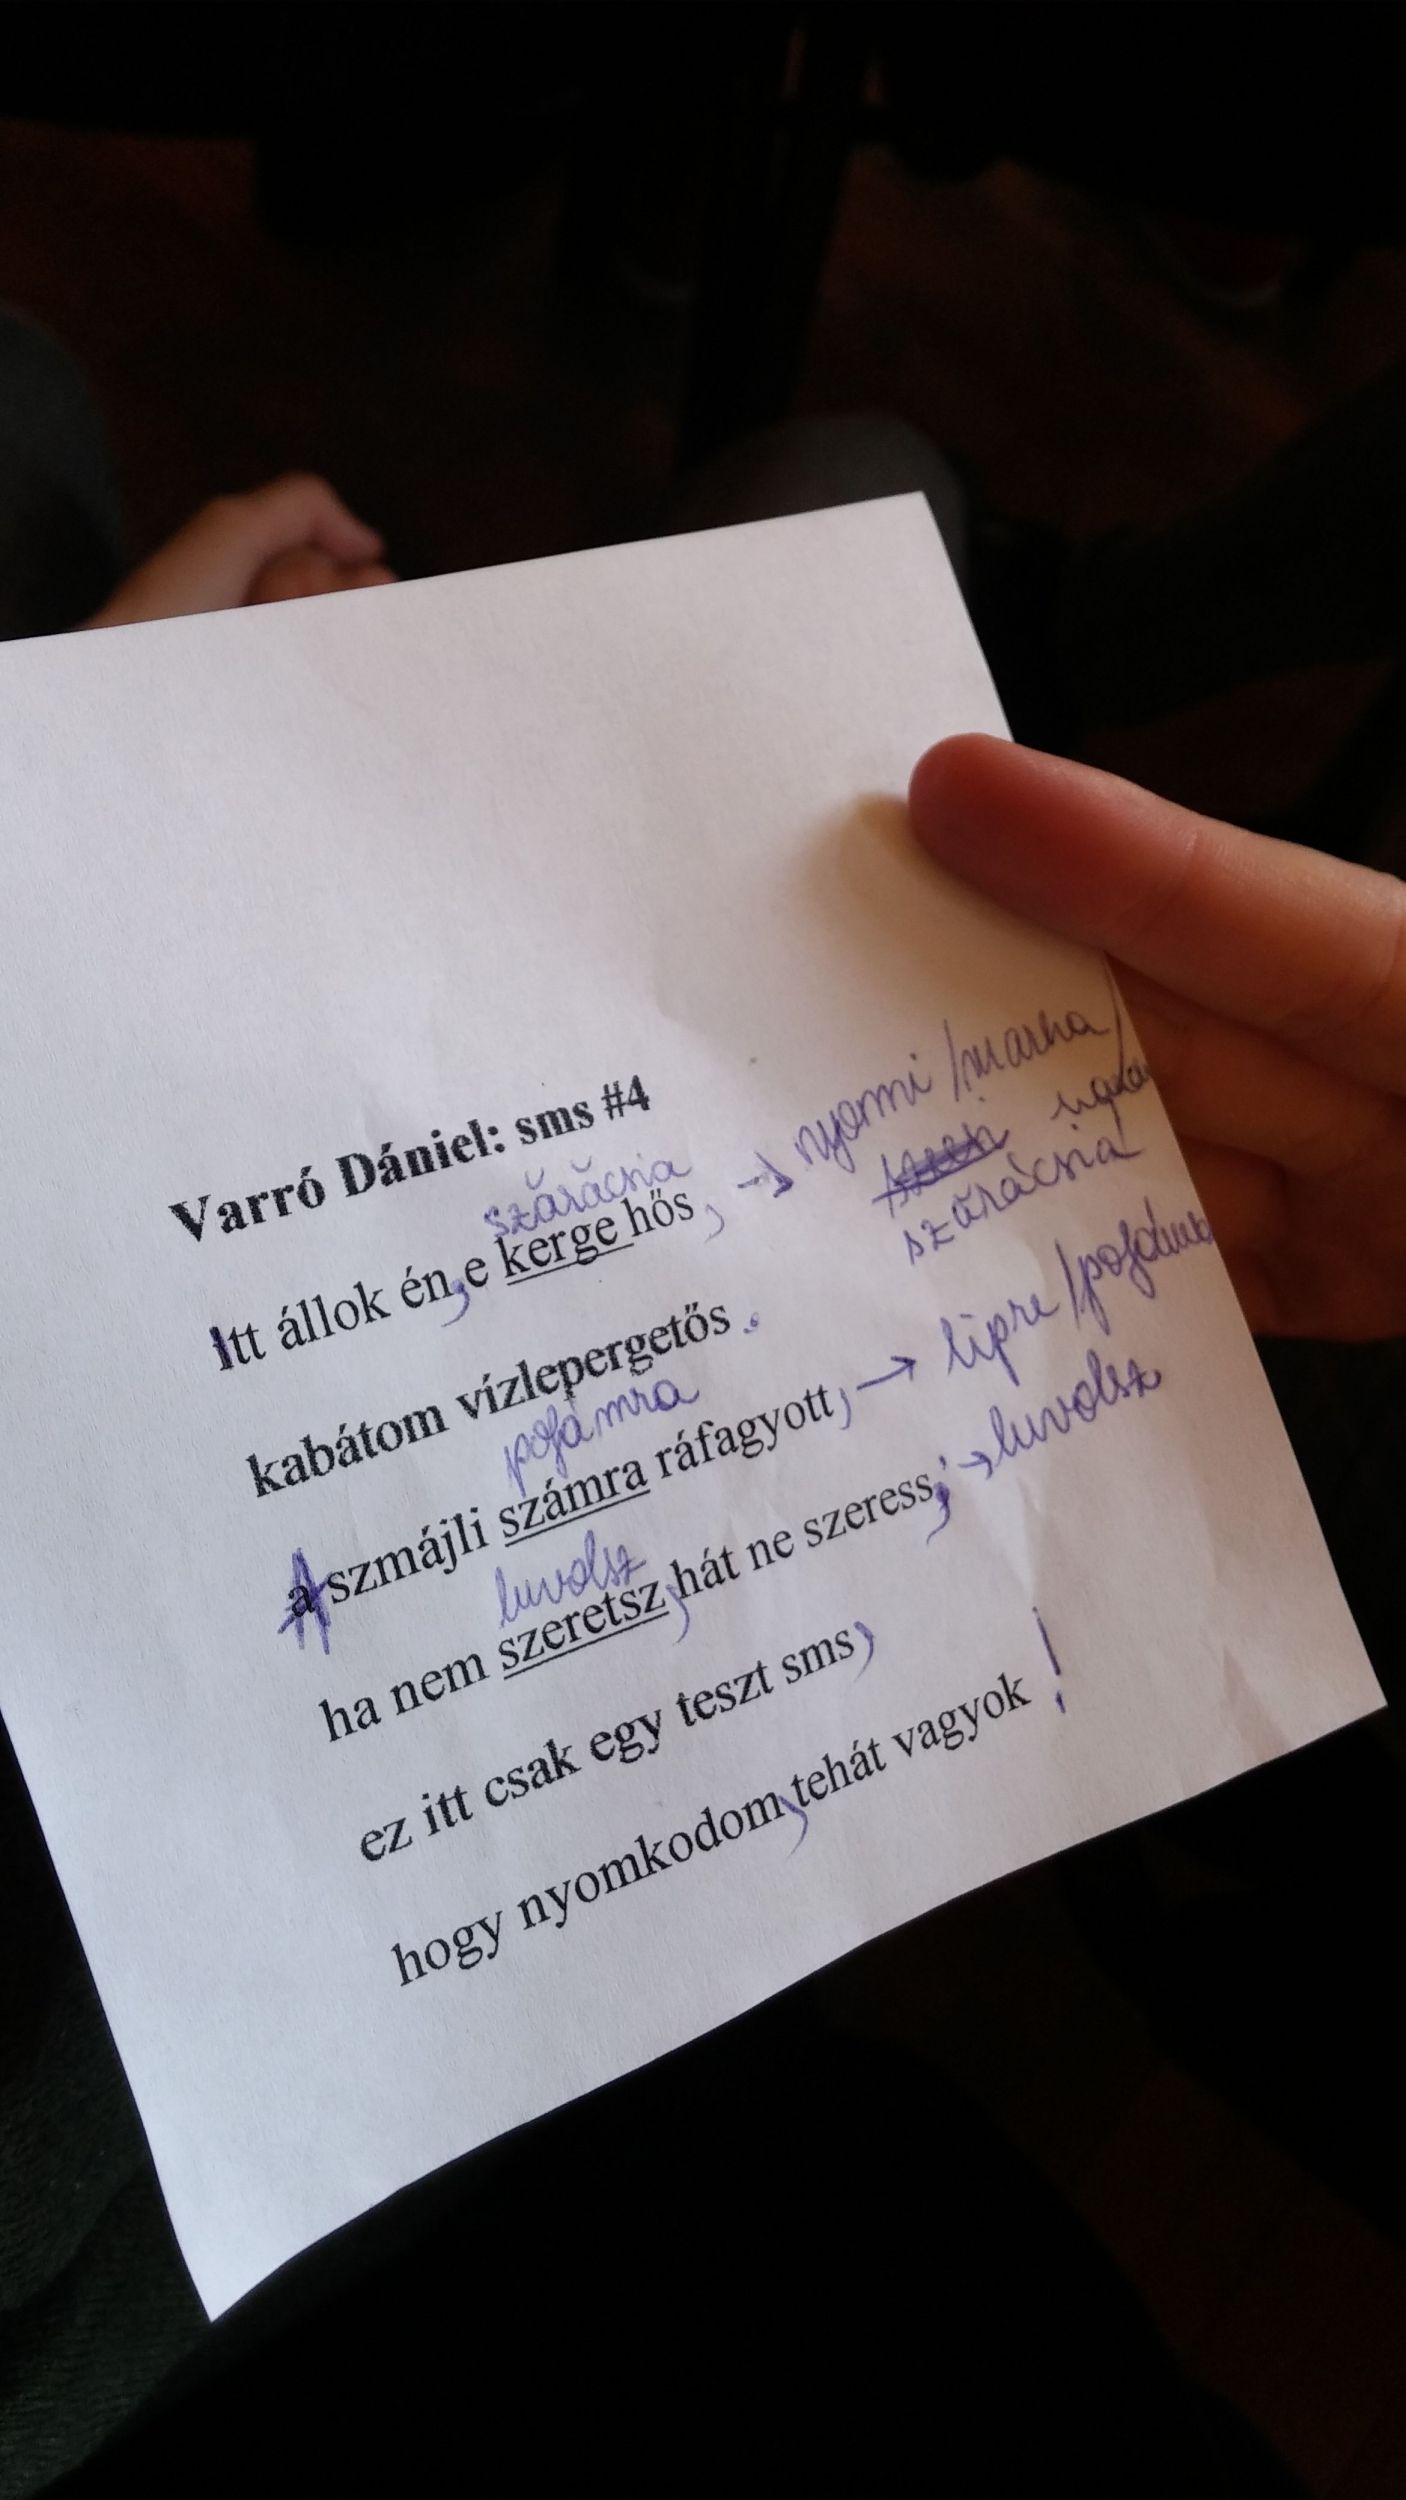 Varró Dániel: sms #4
szărăcsia
Itt állok én, e kerge hős, → nyomi / marha /
szărácsia
kabátom vízlepergetős.
pofámra
A szmájli számra ráfagyott, → lipre / pofámra
luvolsz
ha nem szeretsz, hát ne szeress; → luvolsz
ez itt csak egy teszt sms,
hogy nyomkodom, tehát vagyok!